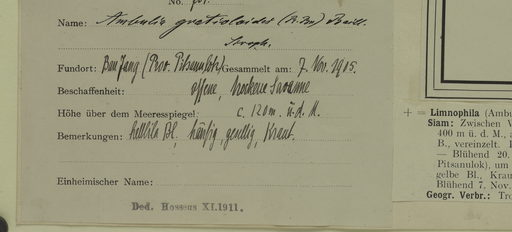 No.
Name: Ambulia gratioloides (R.Br.) Baill.
Scroph.
Fundort: Ban Jang (Prov. Pitsanulok) Gesammelt am: 7. Nov. 1905.
Beschaffenheit: offene, trockene Savanne
Höhe über dem Meeresspiegel: c. 120 m. ü. d. M.
Bemerkungen: helllila Bl., häufig, gesellig, Kraut.
Einheimischer Name:
Ded. Hosseus XI.1911.
+ = Limnophila (Ambu
Siam: Zwischen W
400 m ü. d. M., a
B., vereinzelt.
— Blühend 20.
Pitsanulok), um
gelbe Bl., Krau
Blühend 7. Nov.
Geogr. Verbr.: Tro